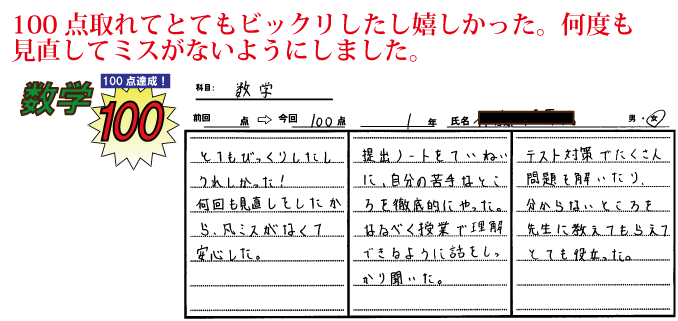 100点取れてとてもビックリしたし嬉しかった。何度も
見直してミスがないようにしました。
数学
100点達成!
100
科目: 数学
前回 点 ⇨ 今回 100点 1年 氏名 男・女
とてもびっくりしたし
うれしかった!
何回も見直しをしたか
ら、凡ミスがなくて
安心した。
提出ノートをていねい
に、自分の苦手なとこ
ろを徹底的にやった。
なるべく授業で理解
できるように話をしっ
かり聞いた。
テスト対策でたくさん
問題を解いたり、
分からないところを
先生に教えてもらえて
とても役立った。